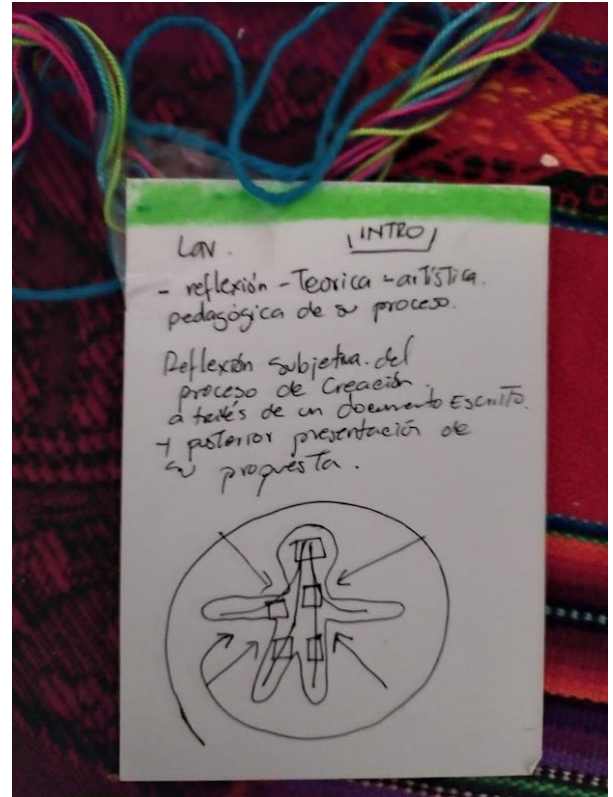 Lav. INTRO
- reflexión - Teorica - artística.
pedagógica de su proceso.
Reflexión subjetiva. del
proceso de Creación.
a través de un documento Escrito.
y posterior presentación de
su propuesta.